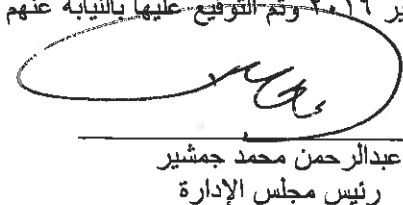 ير ٢٠١٦ وتم التوقيع عليها بالنيابة عنهم
عبدالرحمن محمد جمشير
رئيس مجلس الإدارة